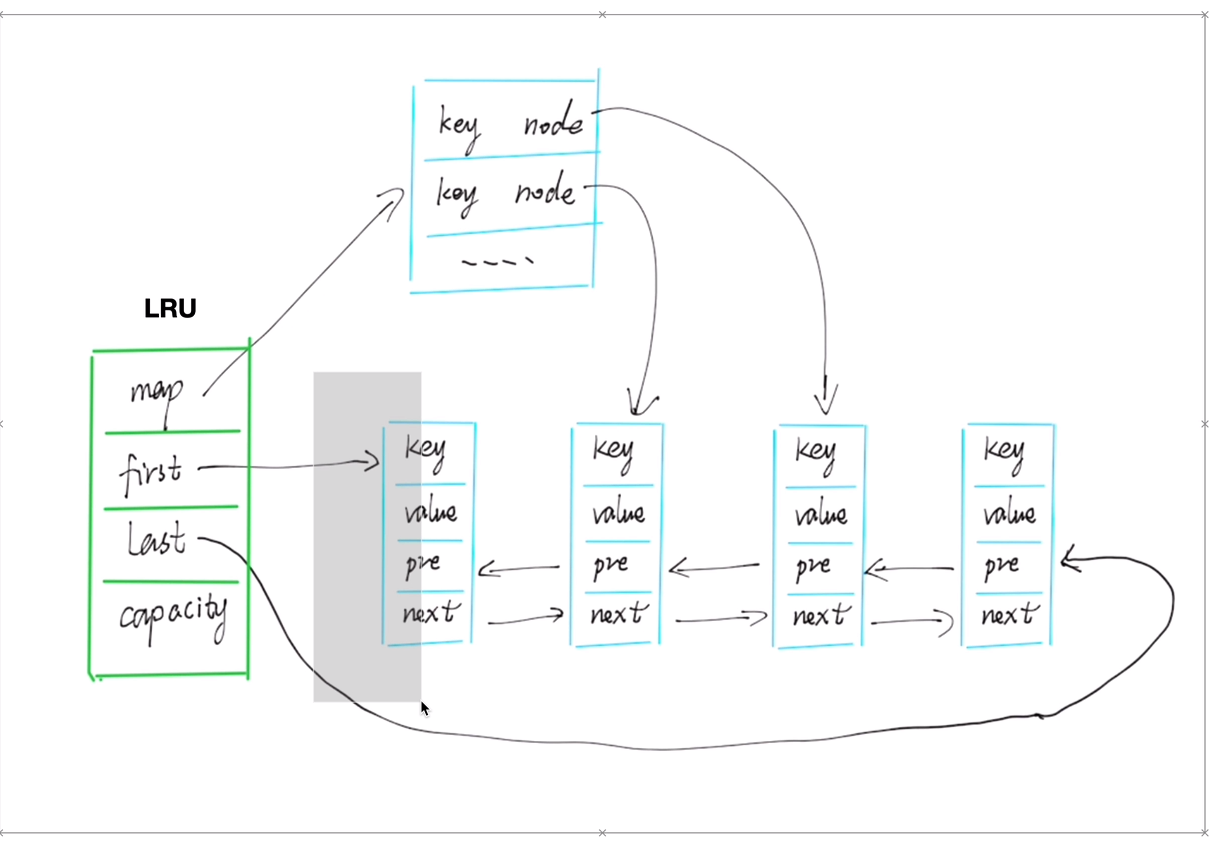 key node
key node
LRU
map
first
last
capacity
key
value
pre
next
key
value
pre
next
key
value
pre
next
key
value
pre
next